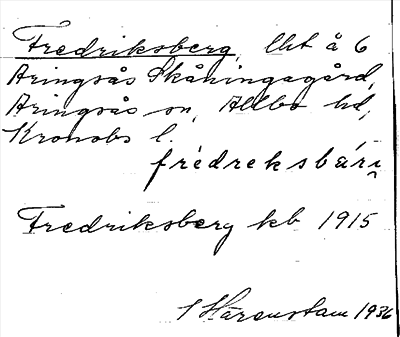 Fredriksberg, lht å 6
Aringsås Skåningagård,
Aringsås sn, Allbo hd,
Kronobs l.
frédreksbär̂i
Fredriksberg kb 1915
Härenstam 1936